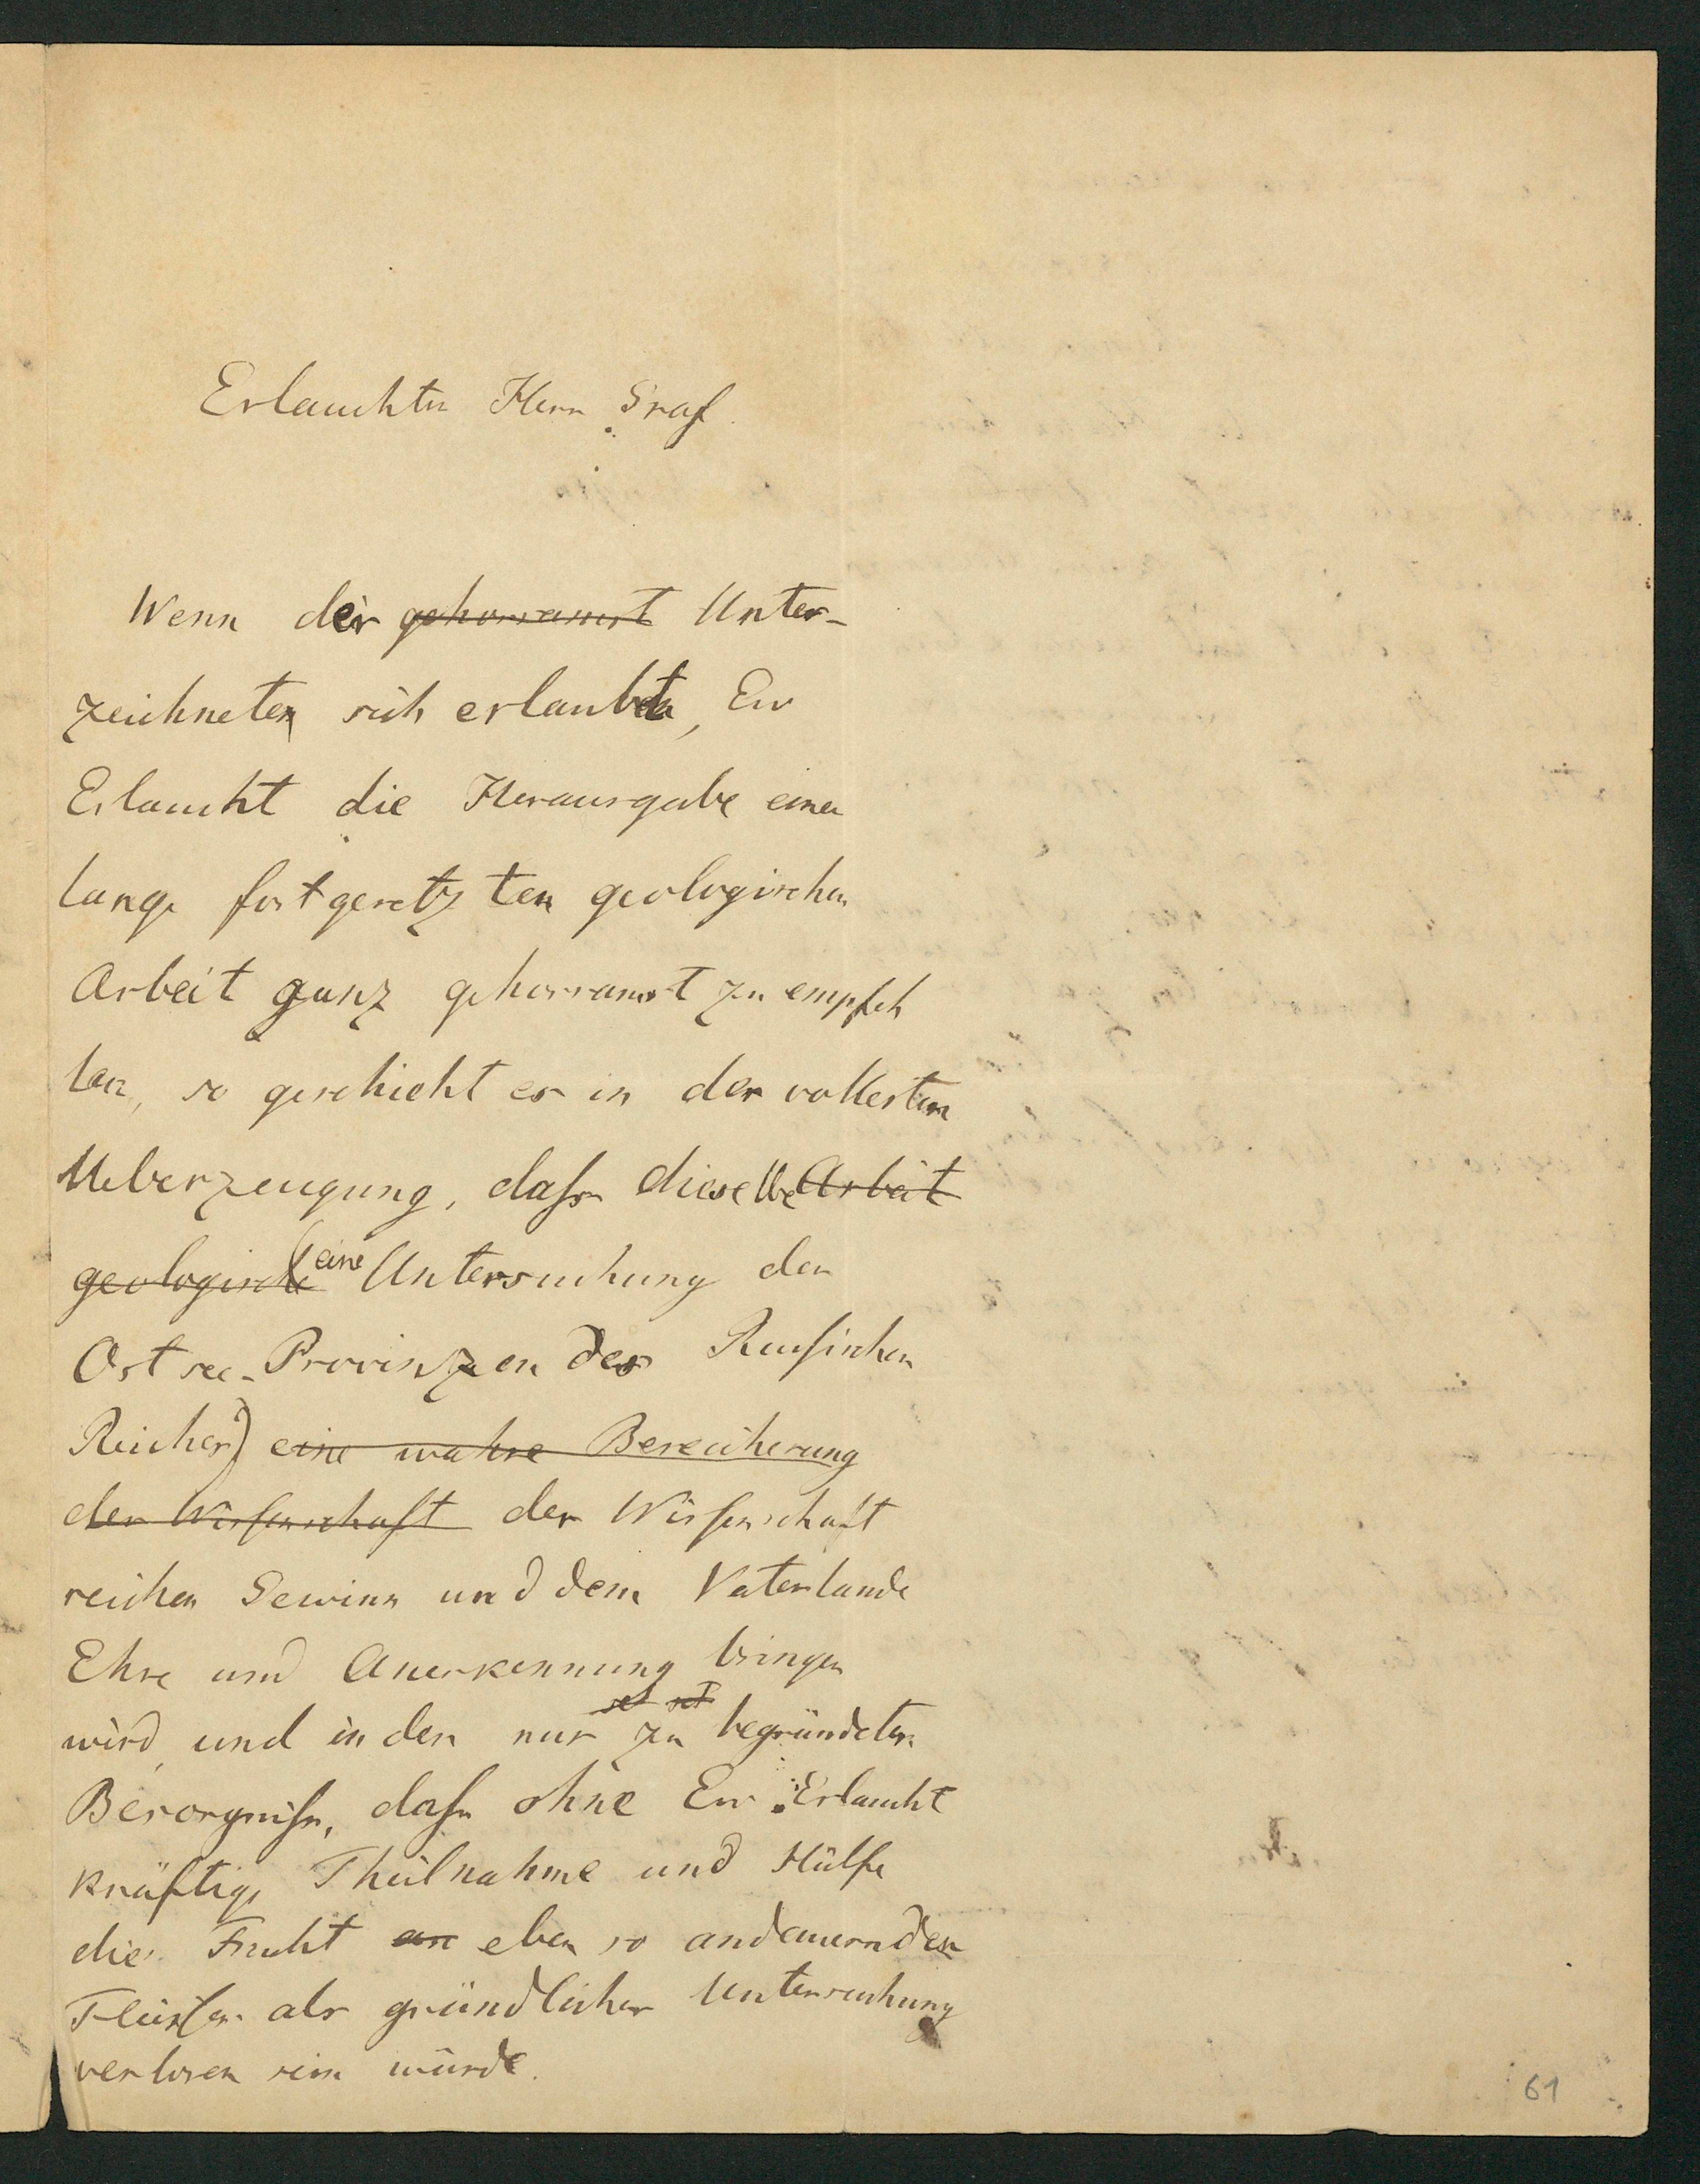 Erlauchter Herr Graf
Wenn der gehorsamst Unter-
zeichneten sich erlaubt, Ew
Erlaucht die Herausgabe einer
lange fortgesetzten geologischen
Arbeit ganz gehorsamst zu empfeh
len, so geschieht es in der vollesten
Ueberzeugung, dass dieselbe Arbeit
geologische (eine Untersuchung der
Ostsee-Provinzen des Russischen
Reiches) eine wahre Bereicherung
der Wissenschaft der Wissenschaft
reichen Gewinn und dem Vaterlande
Ehre und Anerkennung bringen
wird und in der nur zu begründeten
Besorgniss, dass ohne Ew Erlaucht
kräftige Theilnahme und Hülfe
die Frucht eben so andauernden
Fleisses als gründlicher Untersuchung
verloren sein würde.
61